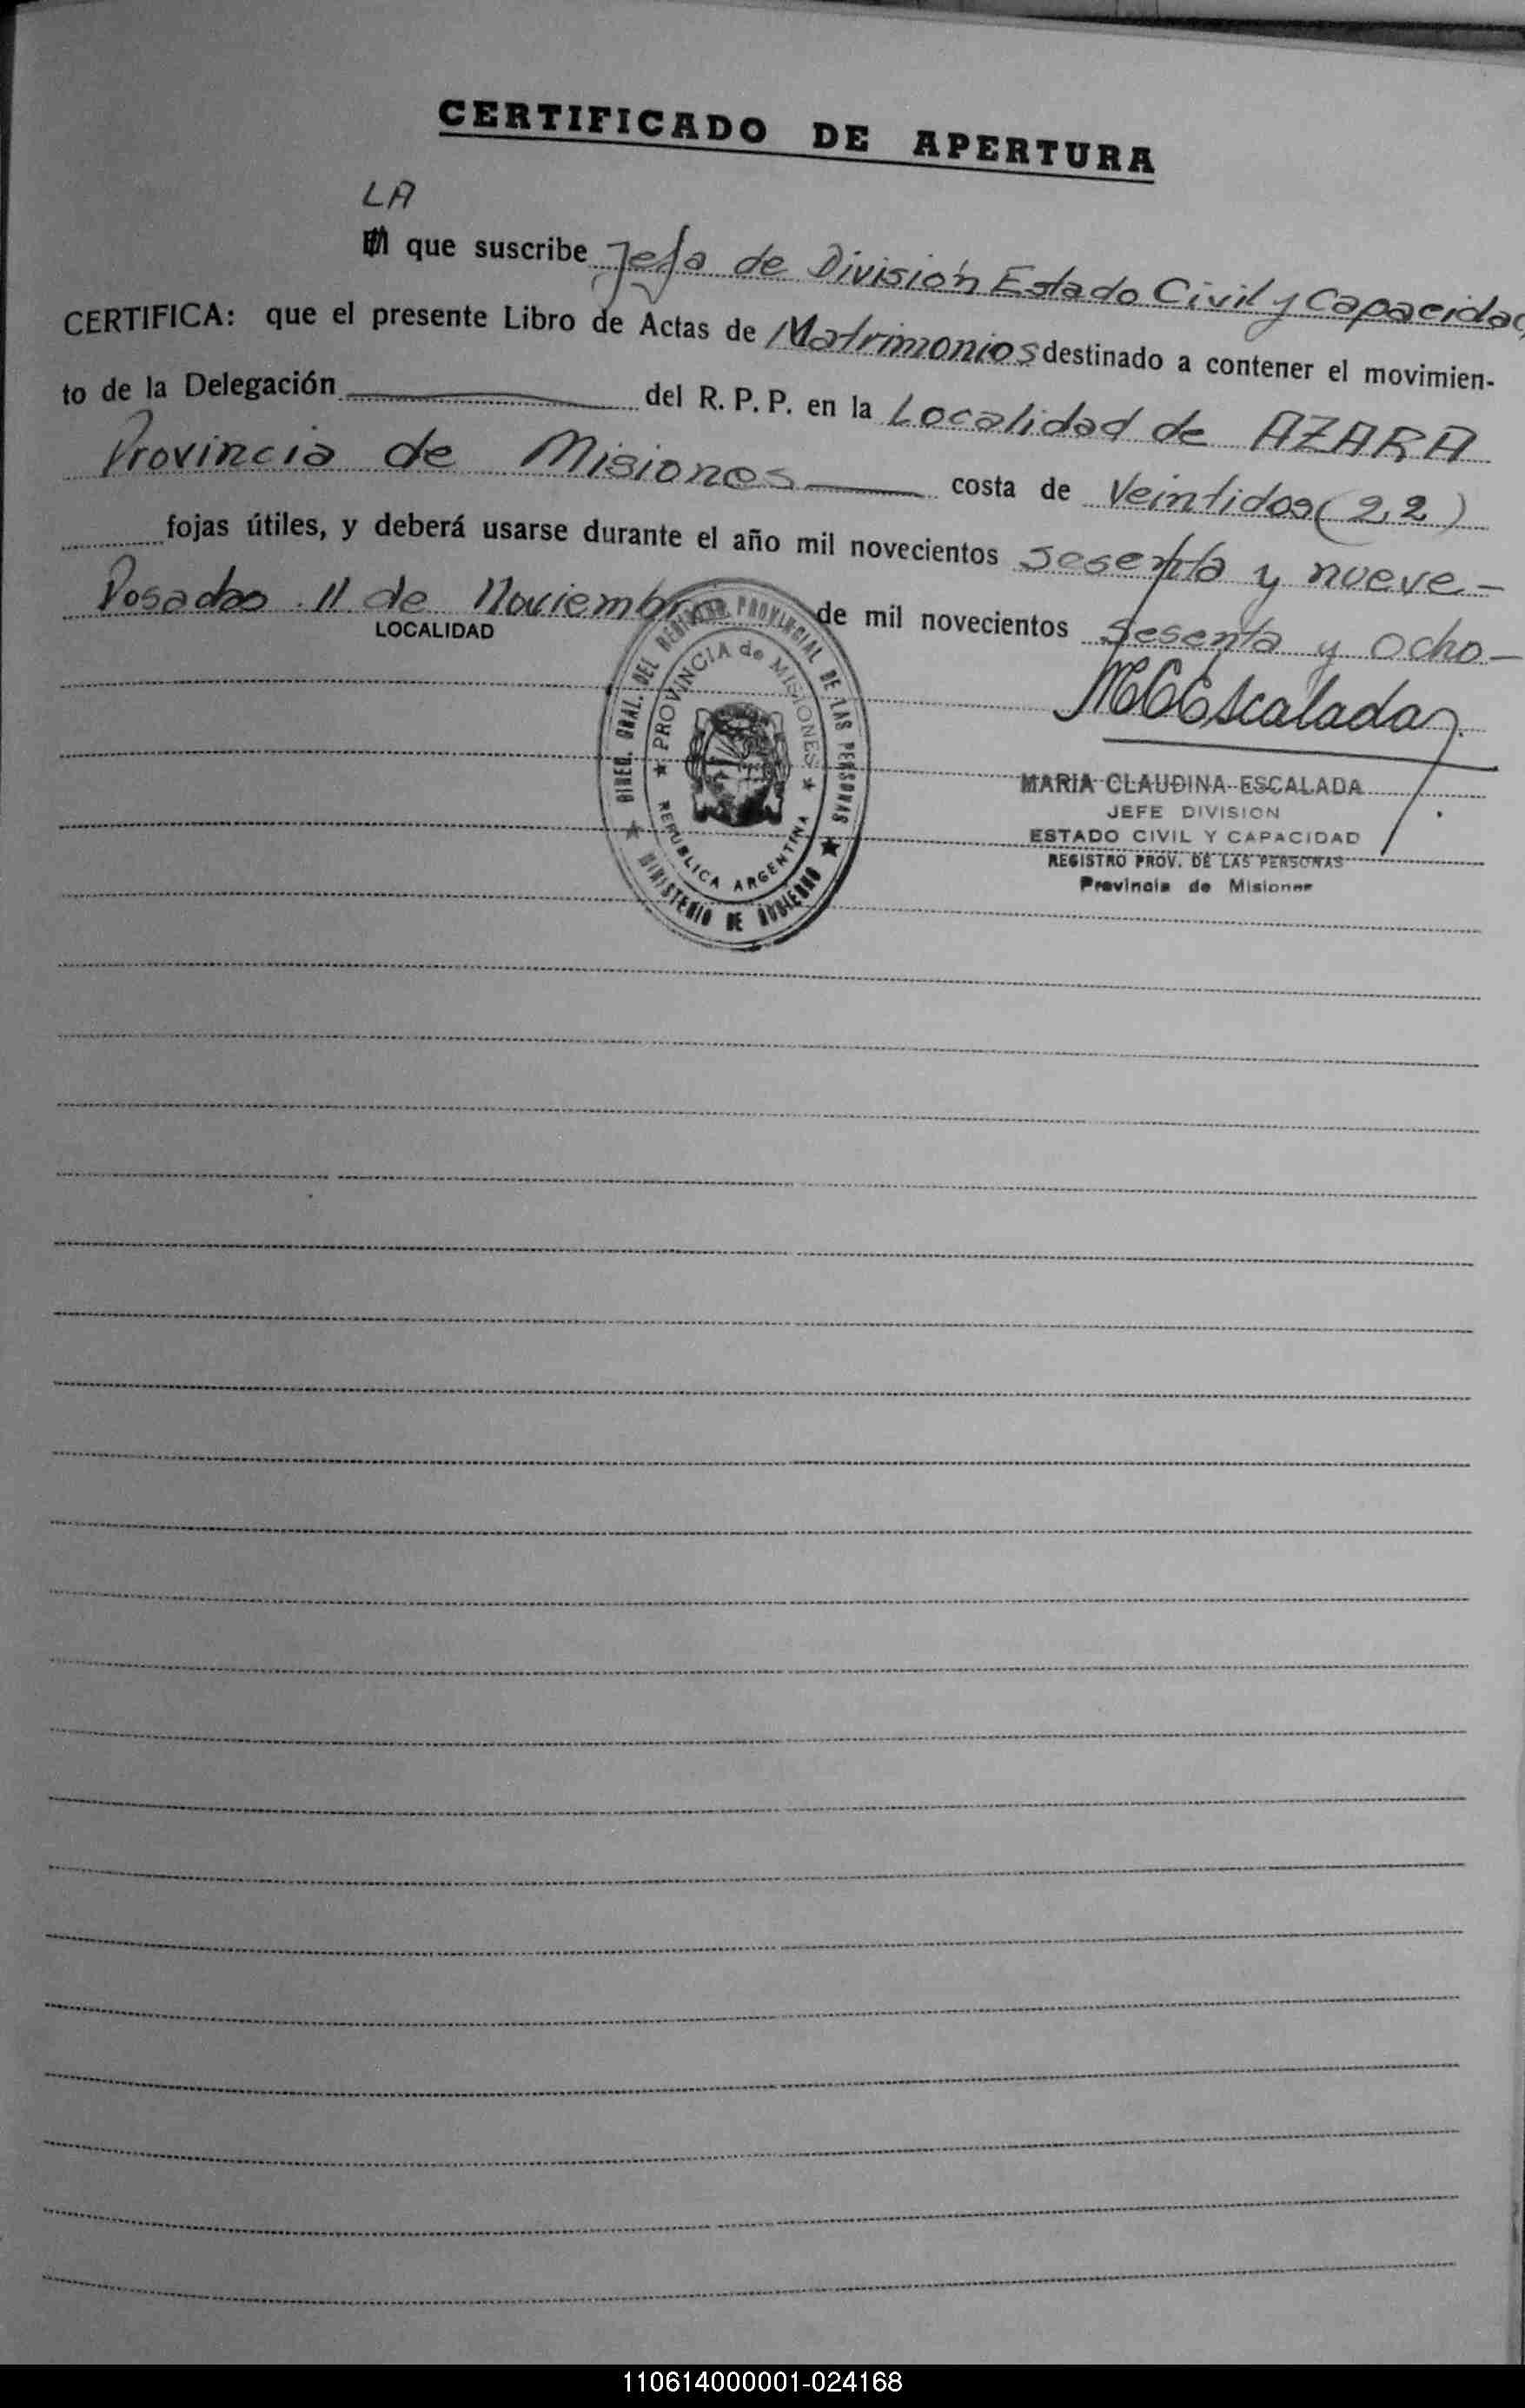 CERTIFICADO DE APERTURA
LA
que suscribe Jefa de División Estado Civil y Capacidad
CERTIFICA: que el presente Libro de Actas de Matrimonios destinado a contener el movimien-
to de la Delegación del R. P. P. en la Localidad de AZARA
Provincia de Misiones costa de Veintidos (22)
fojas útiles, y deberá usarse durante el año mil novecientos sesenta y nueve-
Posadas 11 de Noviembre de mil novecientos sesenta y ocho-
LOCALIDAD
DIREC. GRAL. DEL REGISTRO PROVINCIAL DE LAS PERSONAS
PROVINCIA de MISIONES
REPUBLICA ARGENTINA
MINISTERIO DE GOBIERNO
MCEscalada
MARIA CLAUDINA ESCALADA
JEFE DIVISION
ESTADO CIVIL Y CAPACIDAD
REGISTRO PROV. DE LAS PERSONAS
Provincia de Misiones
110614000001-024168